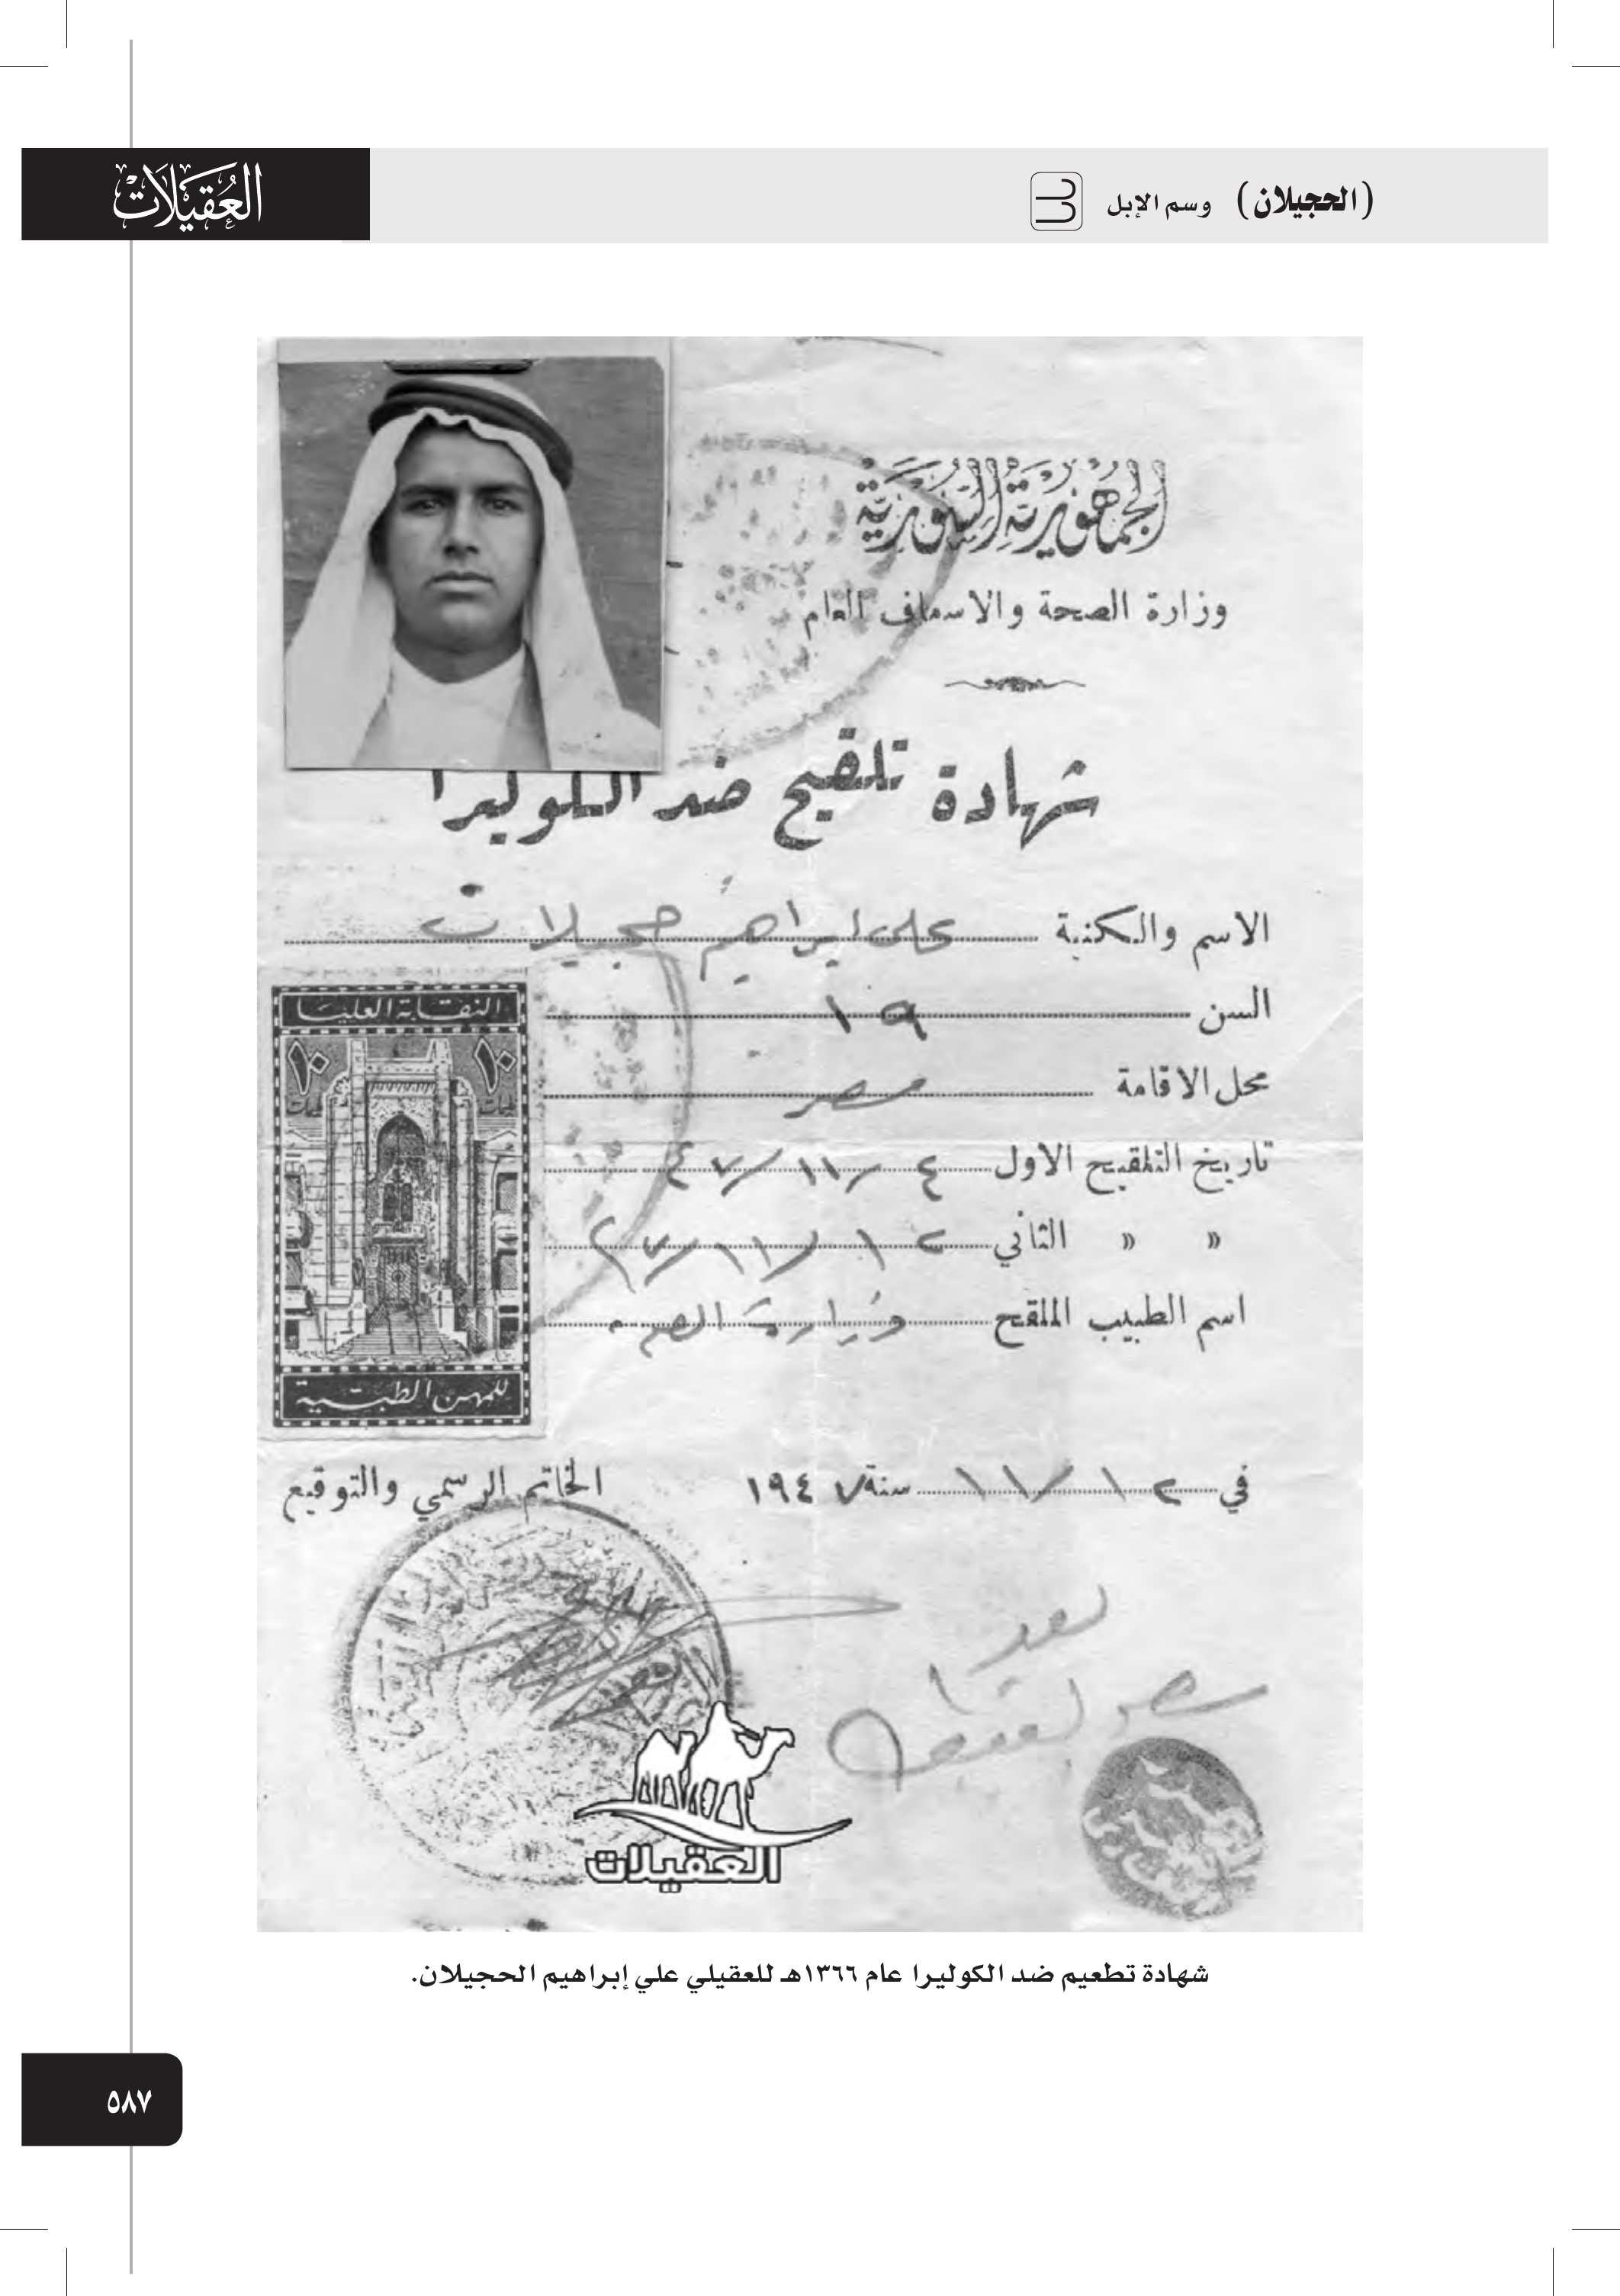 (الحجيلان) وسم الإبل
العقيلات
الجمهورية السورية
وزارة الصحة والاسعاف العام
شهادة تلقيح ضد الكوليرا
الاسم والكنية علي ابراهيم حجيلان
السن ١٩
محل الاقامة مصر
تاريخ التلقيح الاول ٤/١١/٤٧
« « الثاني ١٢/١١/٤٧
اسم الطبيب الملقح وزارة الصحة
النقابة العليا
١٠ ١٠
للمهن الطبية
في ١٢/١١ سنة ١٩٤٧
الخاتم الرسمي والتوقيع
العقيلات
شهادة تطعيم ضد الكوليرا عام ١٣٦٦هـ للعقيلي علي إبراهيم الحجيلان.
٥٨٧